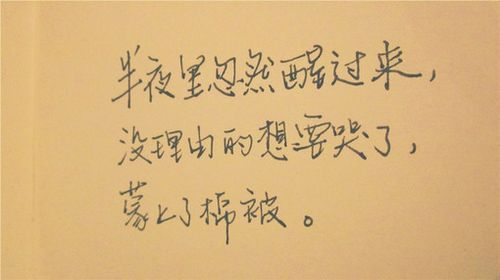 半夜里忽然醒过来，
没理由的想要哭了，
蒙上了棉被。